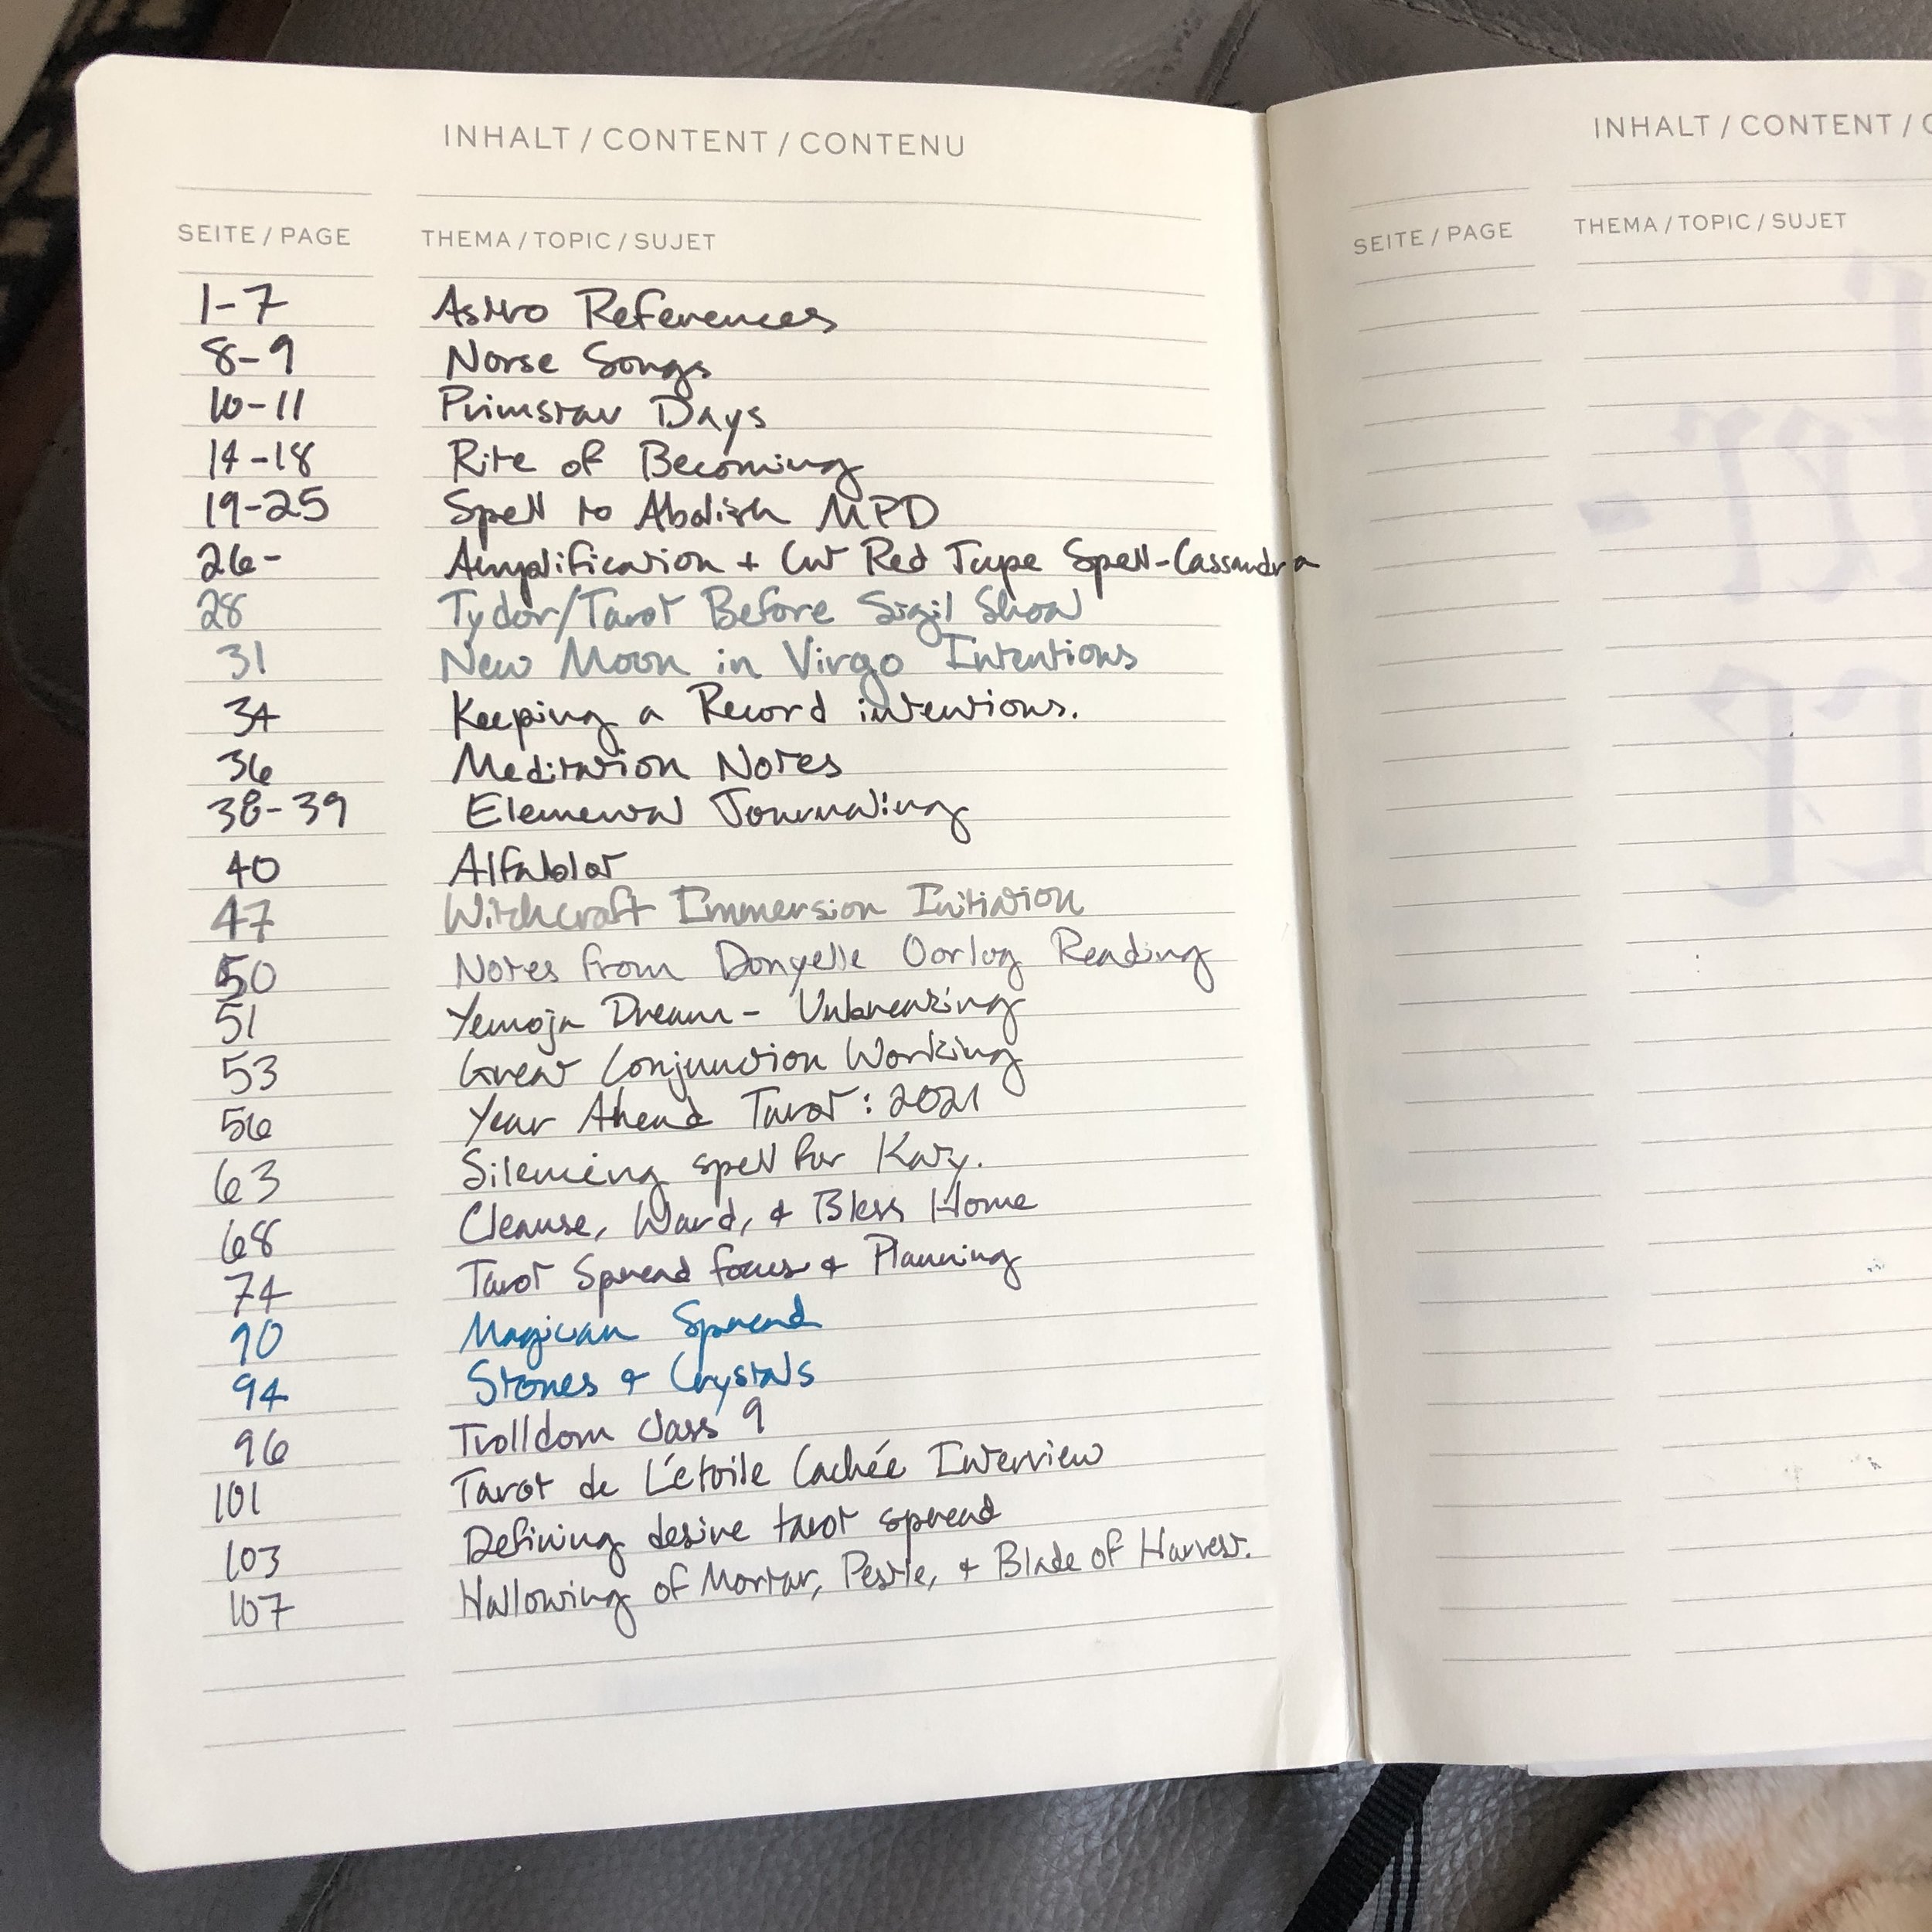 INHALT / CONTENT / CONTENU
SEITE / PAGE THEMA / TOPIC / SUJET
1-7 Astro References
8-9 Norse Songs
10-11 Primstav Days
14-18 Rite of Becoming
19-25 Spell to Abolish MPD
26- Amplification + Cut Red Tape Spell-Cassandra
28 Tydor/Tarot Before Sigil Show
31 New Moon in Virgo Intentions
34 Keeping a Record intentions.
36 Meditation Notes
38-39 Elemental Journaling
40 Alfablot
47 Witchcraft Immersion Initiation
50 Notes from Donyelle Oorlog Reading
51 Yemoja Dream- Unbreaking
53 Great Conjunction Working
56 Year Ahead Tarot: 2021
63 Silencing spell for Katy.
68 Cleanse, Ward, & Bless Home
74 Tarot Spread focus & Planning
90 Magician Spread
94 Stones & Crystals
96 Trolldom class 9
101 Tarot de L'étoile Cachée Interview
103 Defining desire tarot spread
107 Hallowing of Mortar, Pestle, & Blade of Harvest.
INHALT / CONTENT /
SEITE / PAGE THEMA / TOPIC / SUJET